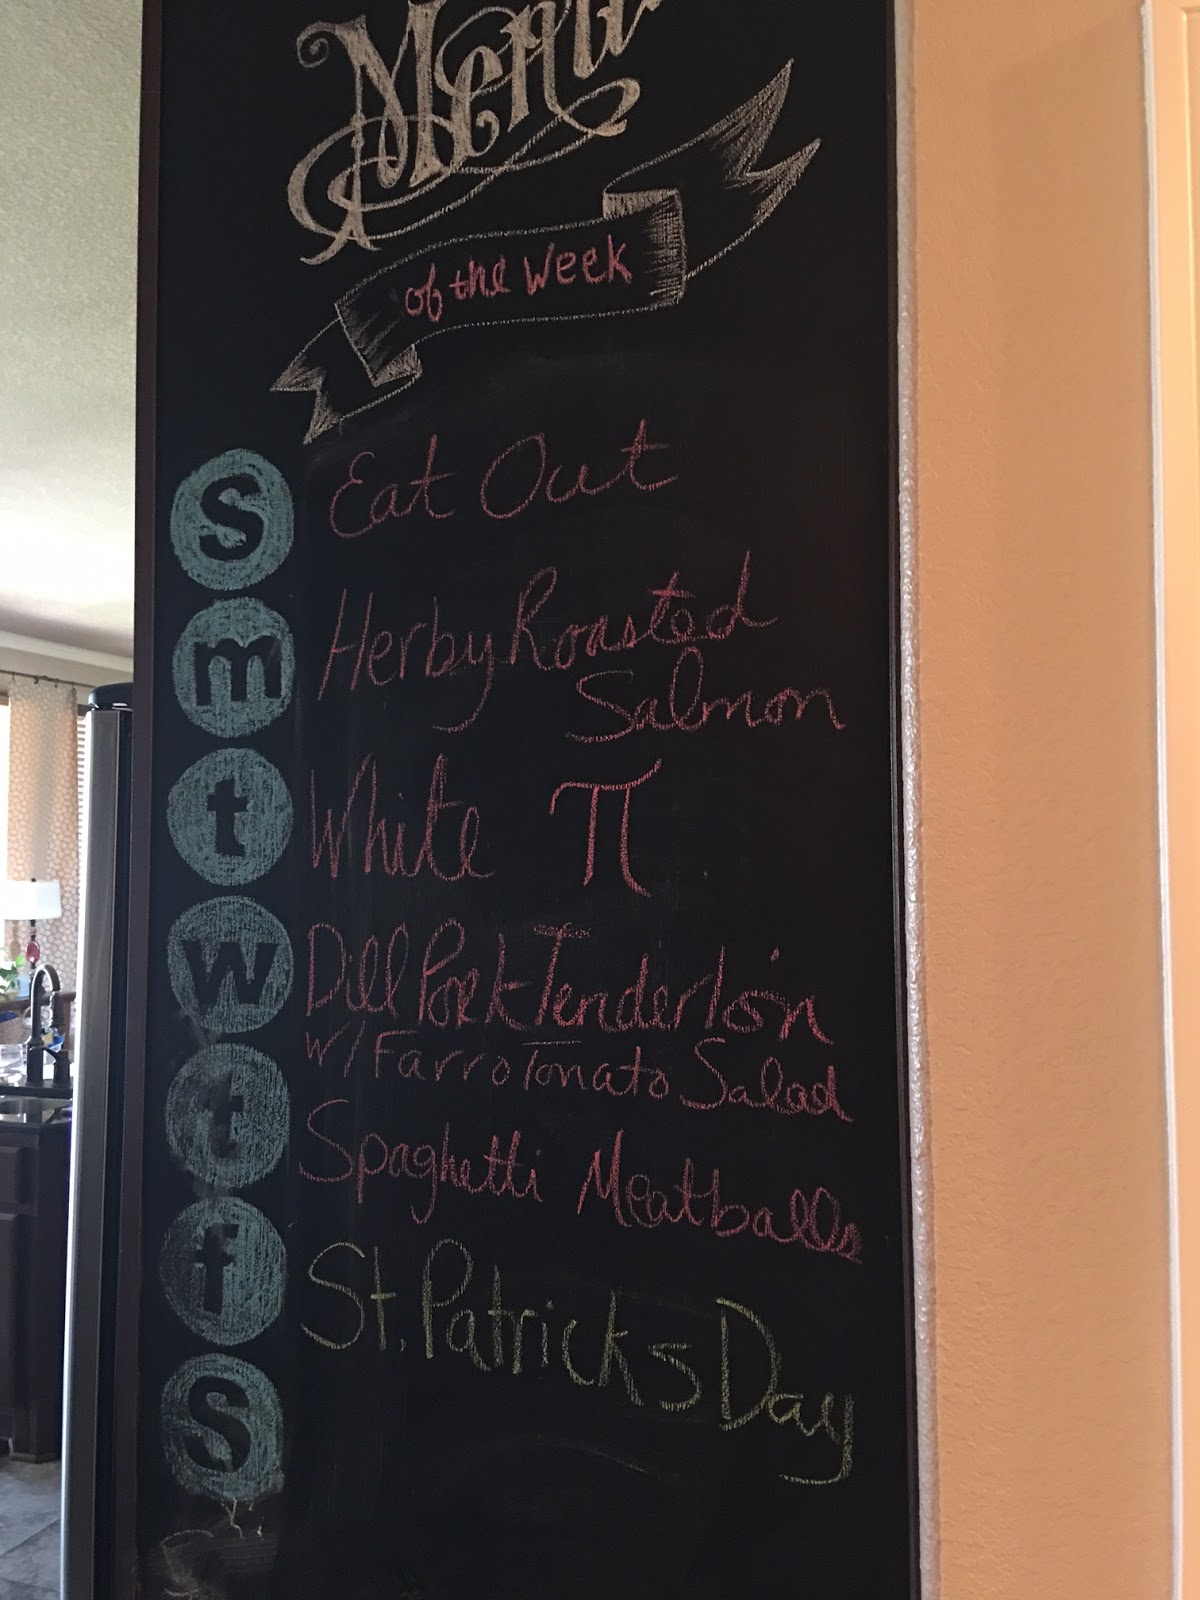 Menu
of the Week
S Eat Out
m Herby Roasted
Salmon
t White π
w Dill Pork Tenderloin
w/ Farro Tomato Salad
t Spaghetti Meatballs
f St. Patricks Day
S